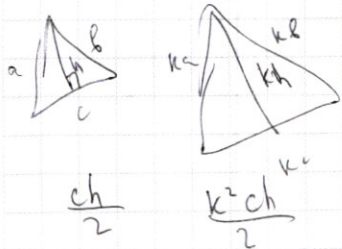 a
b
h
c
ka
kb
kh
kc
ch/2
k² ch/2